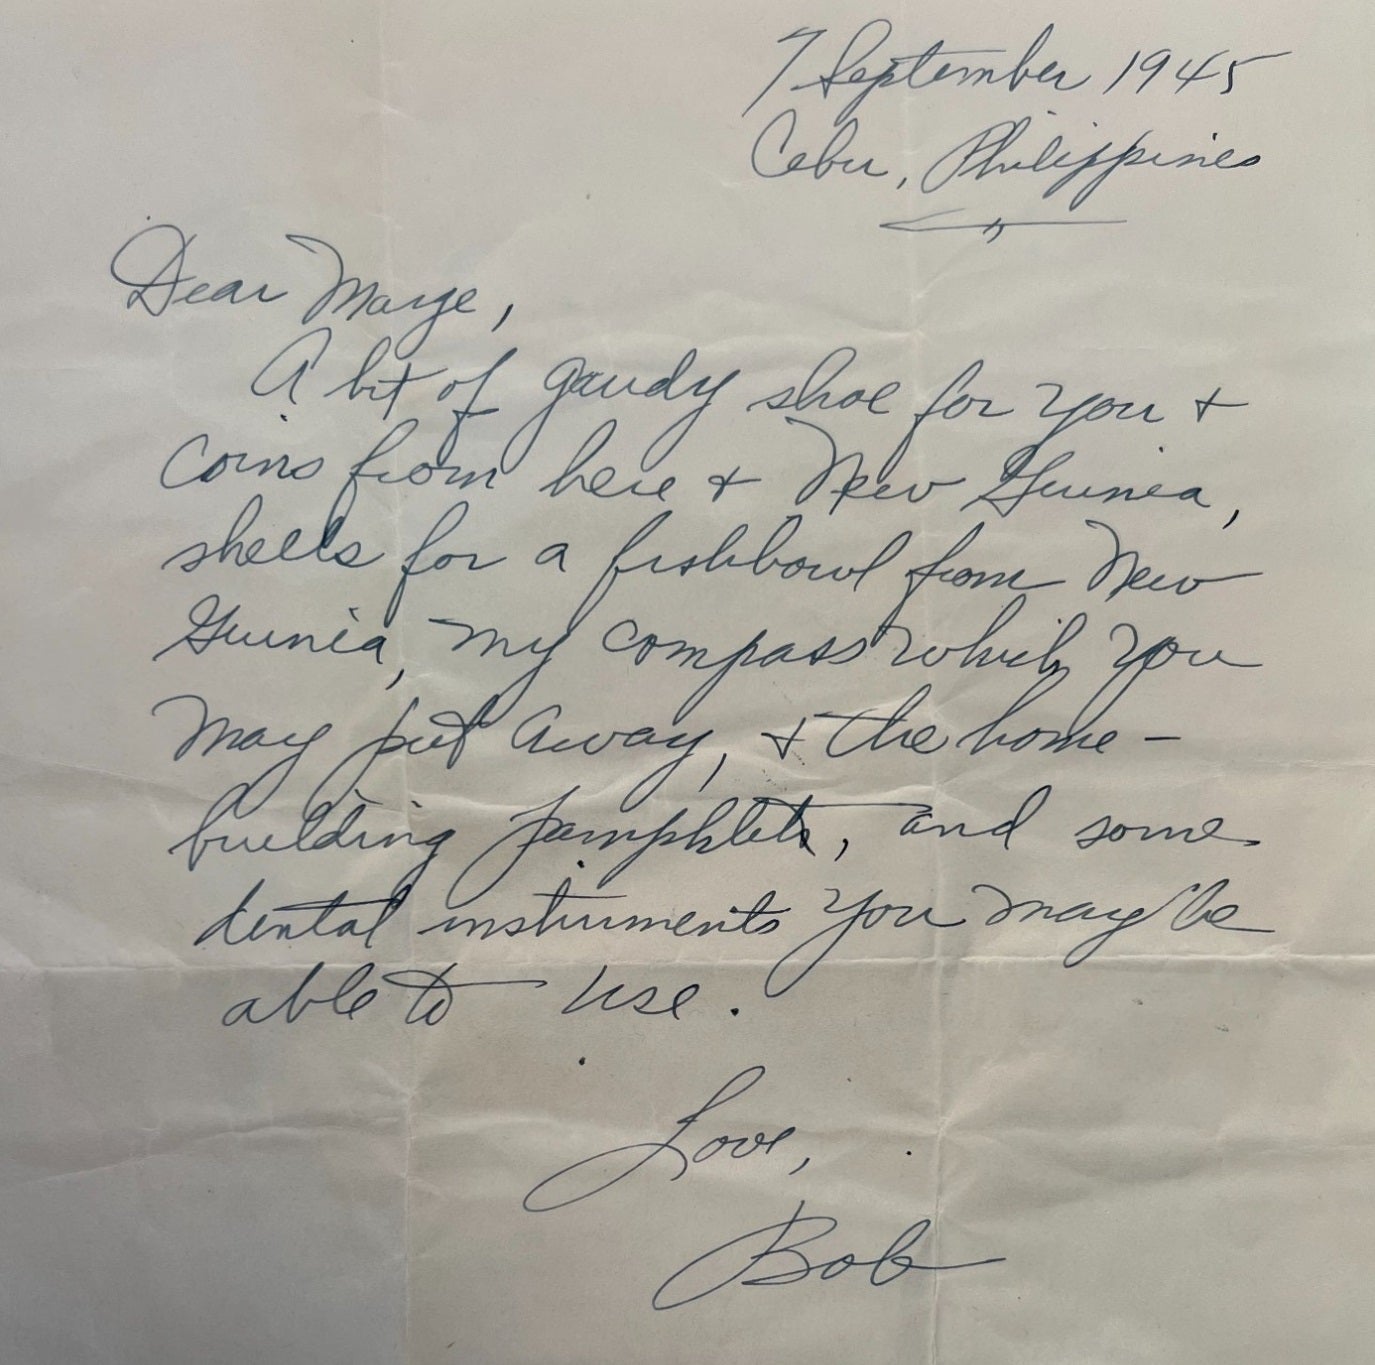 7 September 1945
Cebu, Philippines
Dear Marge,
A bit of gaudy shoe for you +
coins from here + New Guinea,
shells for a fishbowl from New
Guinea, my compass which you
may put away, + the home-
building pamphlets, and some
dental instruments you may be
able to use.
Love,
Bob